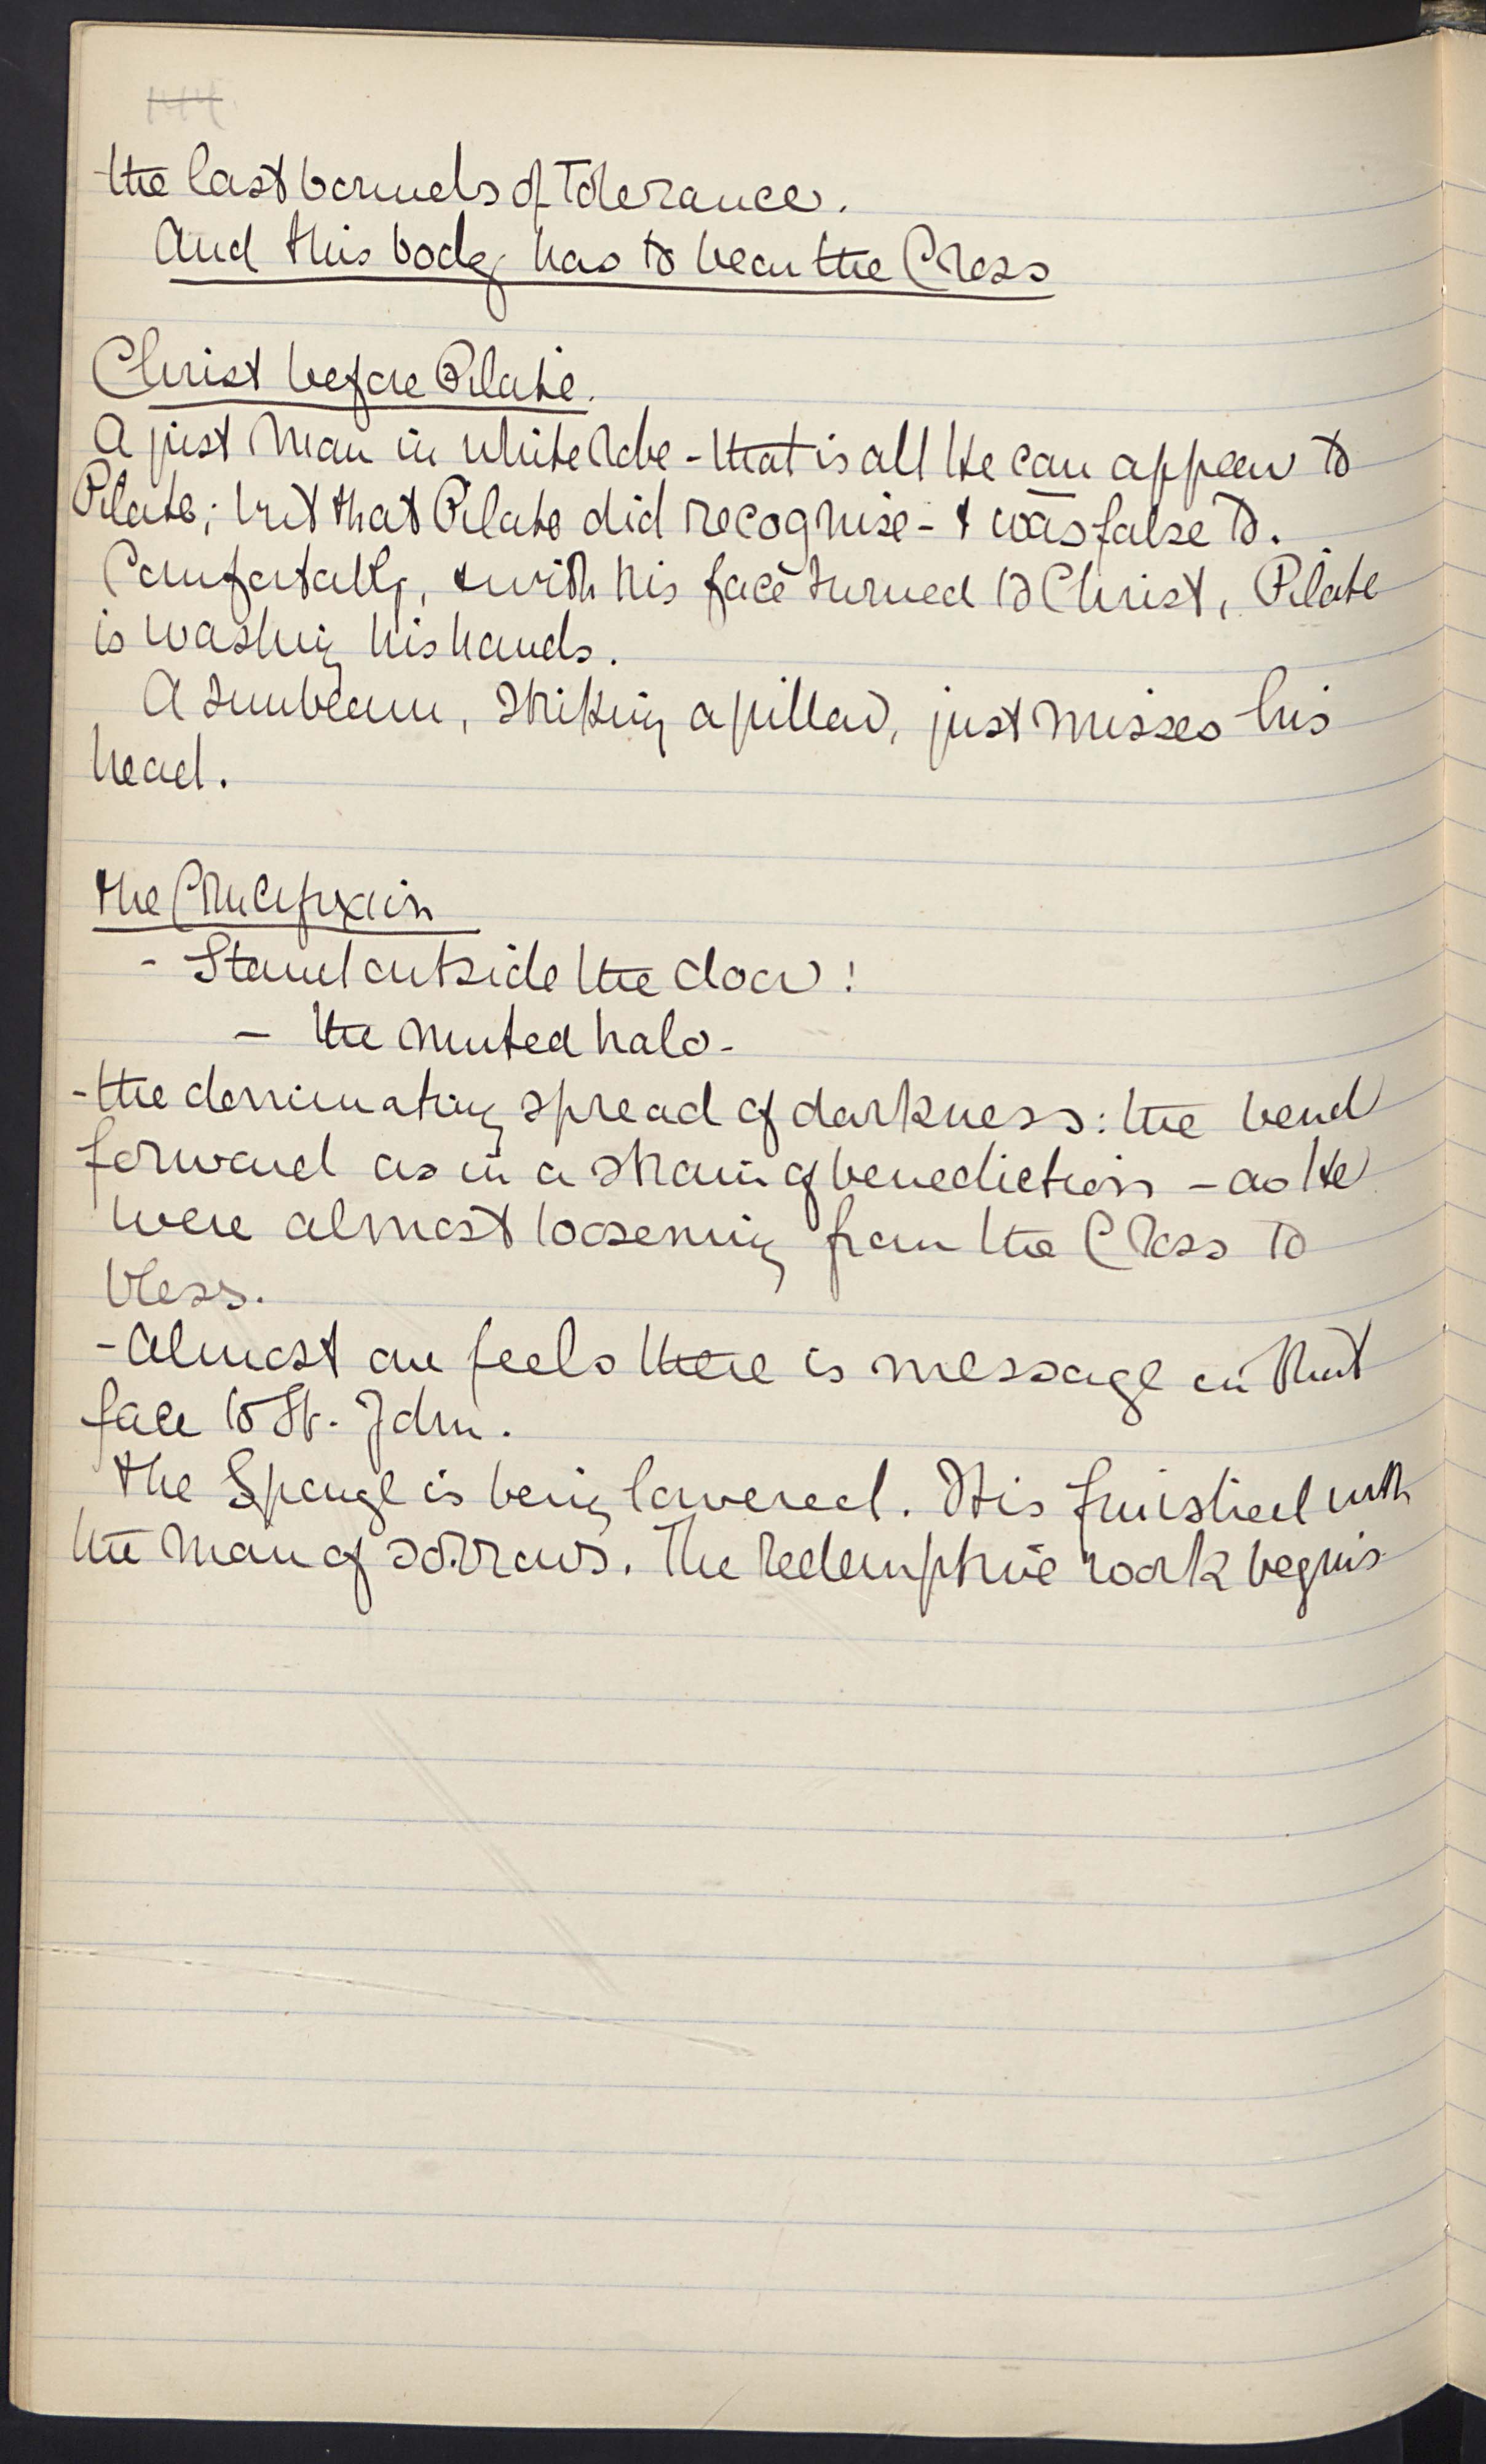 the last bounds of Tolerance.
And this body has to bear the Cross
Christ before Pilate.
A just man in white robe - that is all He can appear to
Pilate; but that Pilate did recognise - & was false to.
Comfortably, & with his face turned to Christ, Pilate
is washing his hands.
A sunbeam, striking a pillar, just misses his
head.
the Crucifixion
- Stand outside the door!
- the muted halo -
- the dominating spread of darkness: the bend
forward as in a strain of benediction - as He
were almost loosening from the Cross to
bless.
- Almost one feels there is message in that
face to St. John.
The Sponge is being lowered. It is finished with
the man of sorrows. The redemptive work begins